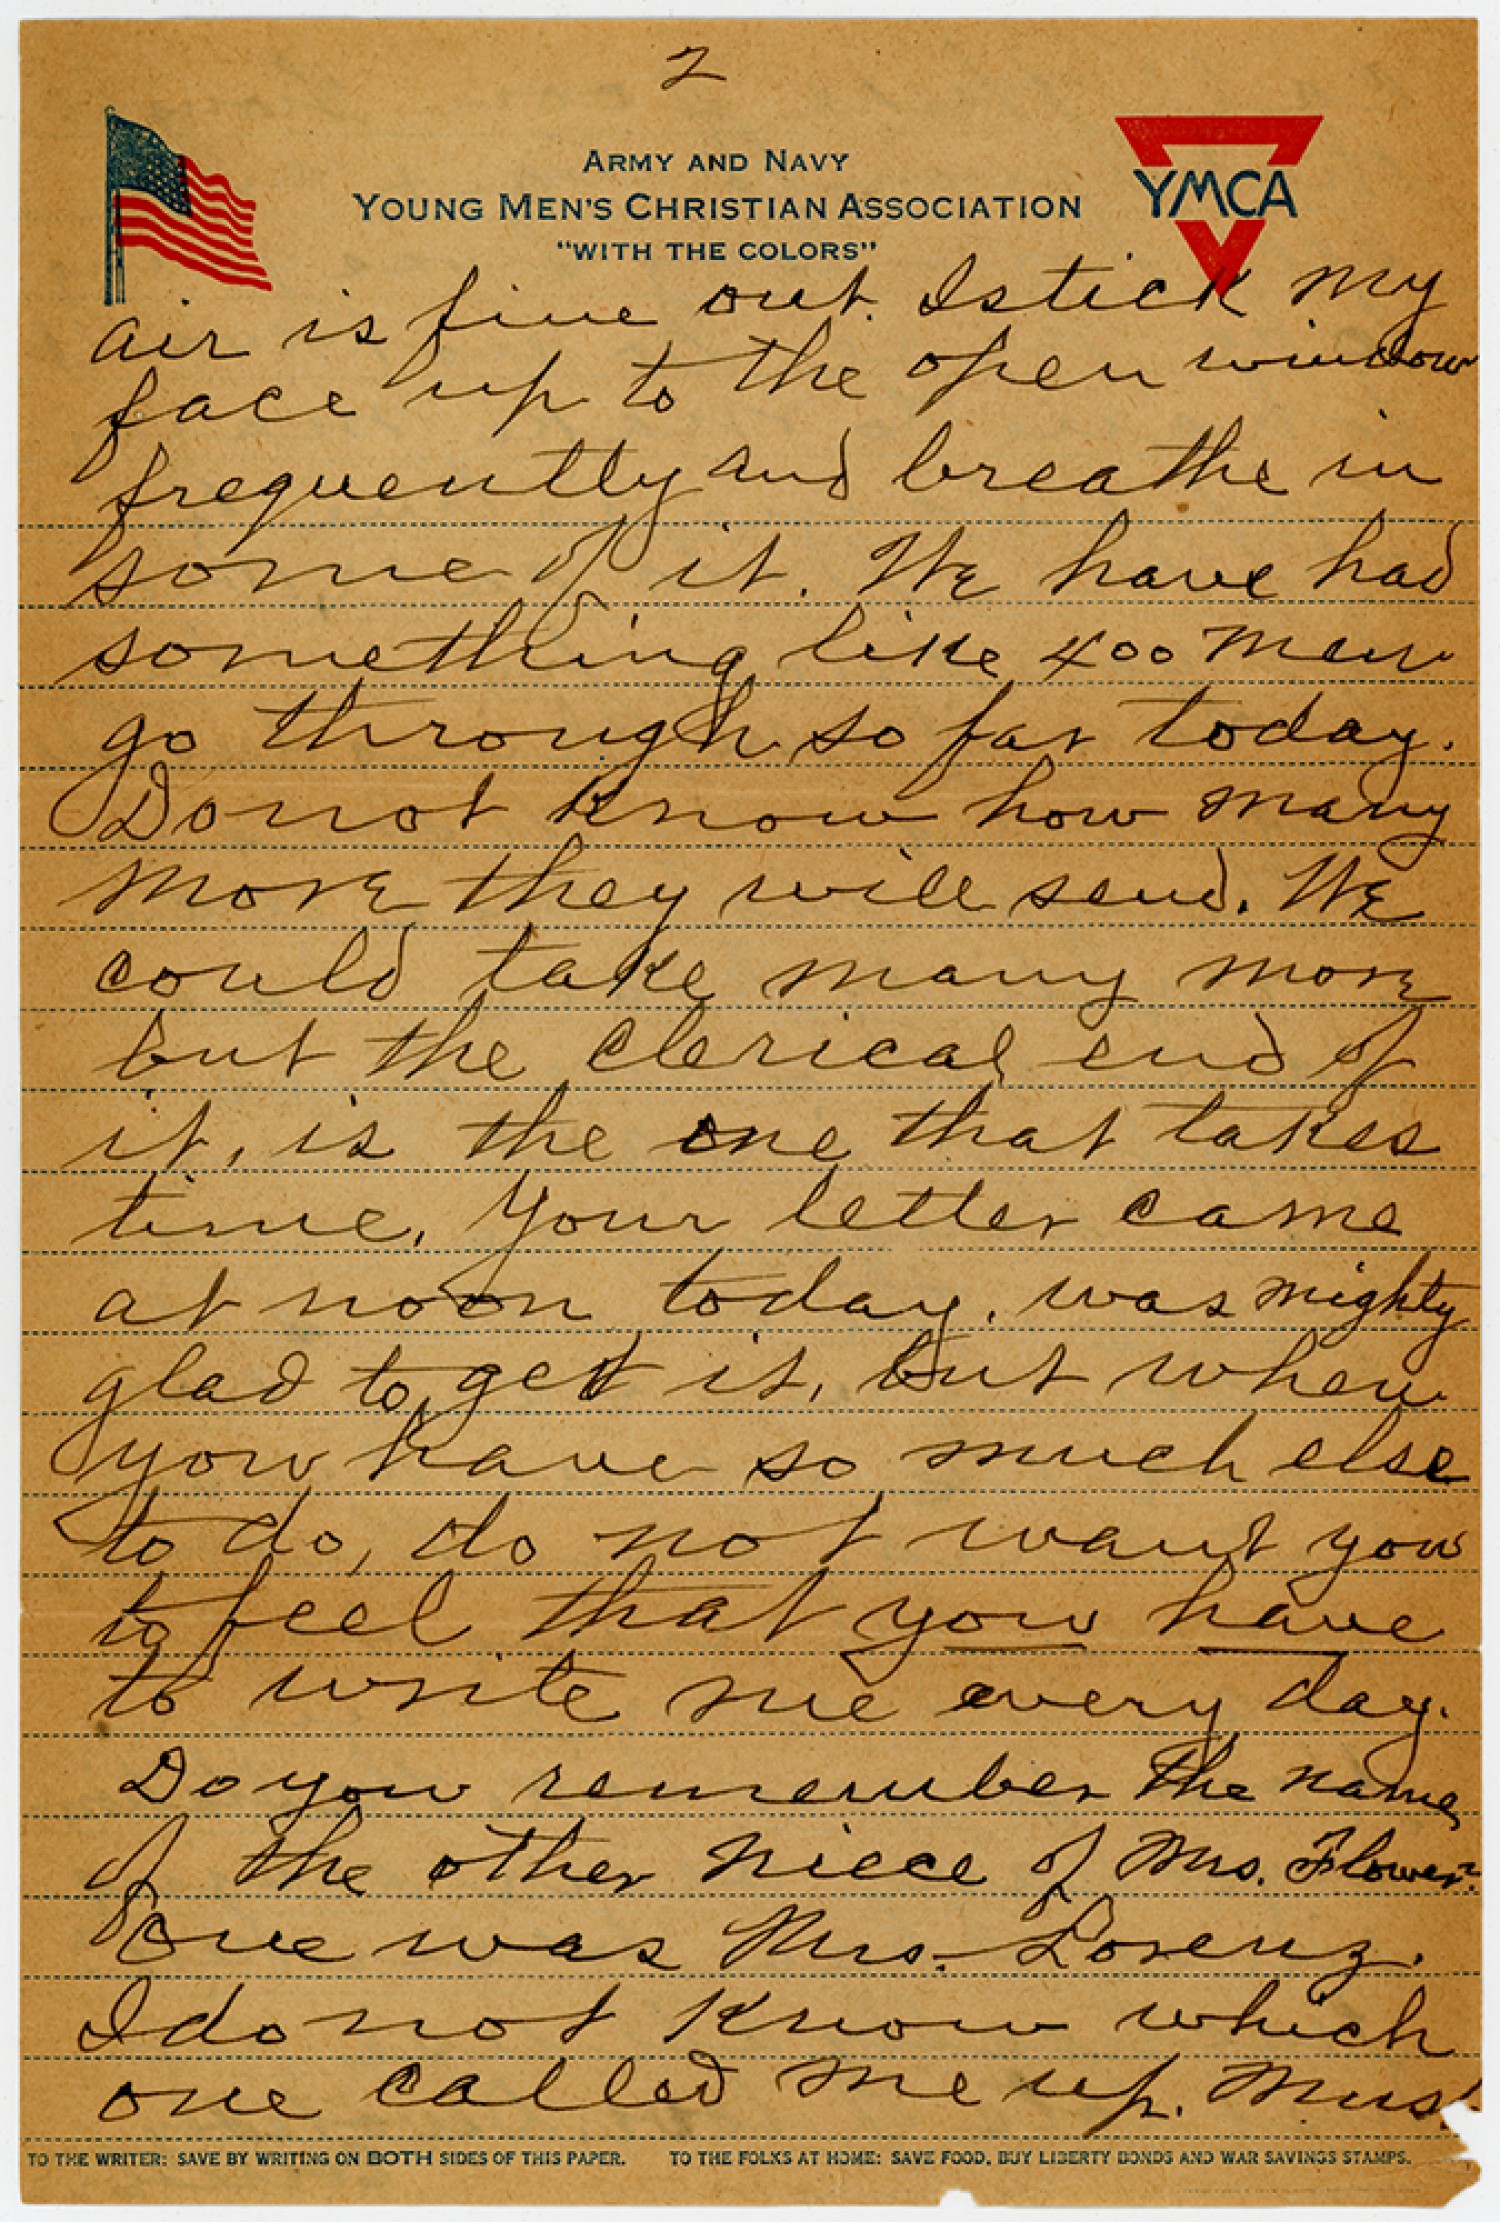 2
ARMY AND NAVY
YOUNG MEN'S CHRISTIAN ASSOCIATION
"WITH THE COLORS"
YMCA
air is fine out. I stick my
face up to the open window
frequently and breathe in
some of it. We have had
something like 400 men
go through so far today.
Do not know how many
more they will send. We
could take many more
but the clerical end of
it, is the one that takes
time. Your letter came
at noon today. was mighty
glad to get it, but when
you have so much else
to do, do not want you
to feel that you have
to write me every day.
Do you remember the name
of the other niece of Mrs. Flower?
One was Mrs. Lorenz.
I do not know which
one called me up. Must
TO THE WRITER: SAVE BY WRITING ON BOTH SIDES OF THIS PAPER. TO THE FOLKS AT HOME: SAVE FOOD, BUY LIBERTY BONDS AND WAR SAVINGS STAMPS.